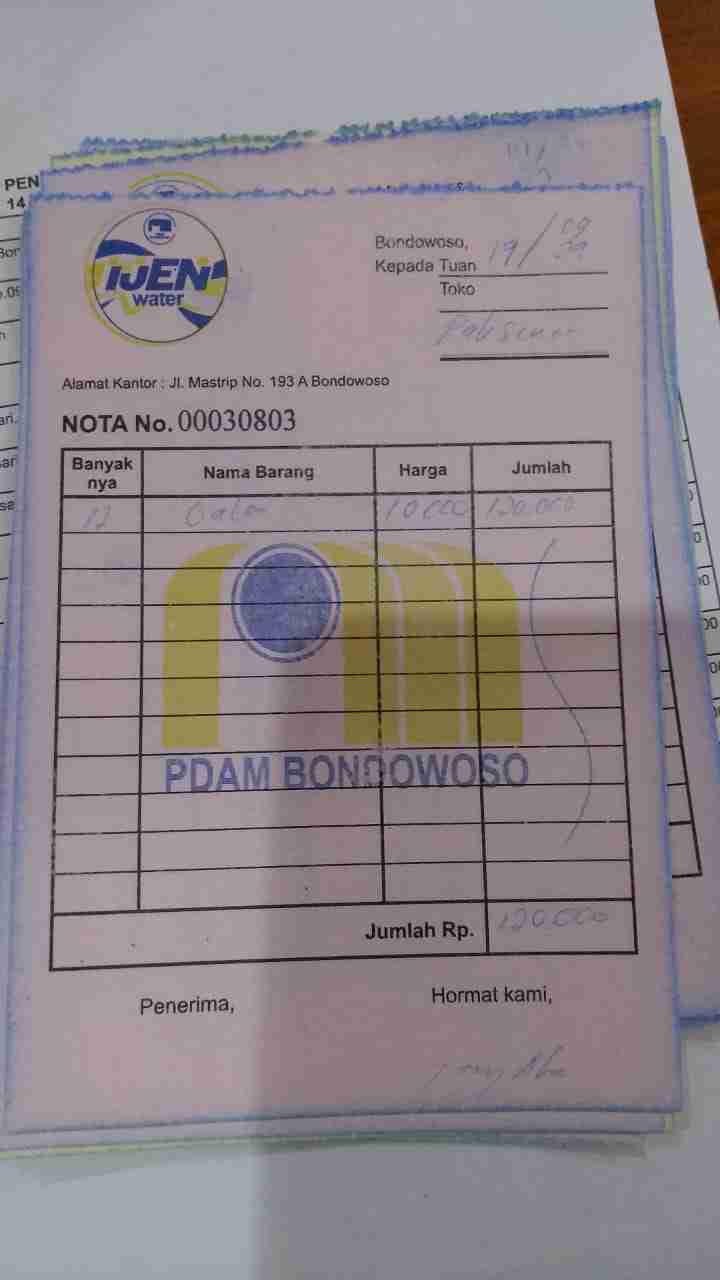 PEN
14
IJEN
water
Bondowoso, 19 / 09
Kepada Tuan
Toko
Alamat Kantor : Jl. Mastrip No. 193 A Bondowoso
NOTA No. 00030803
Banyak nya Nama Barang Harga Jumlah
12 Galon 10.000 120.000
PDAM BONDOWOSO
Jumlah Rp. 120.000
Penerima, Hormat kami,